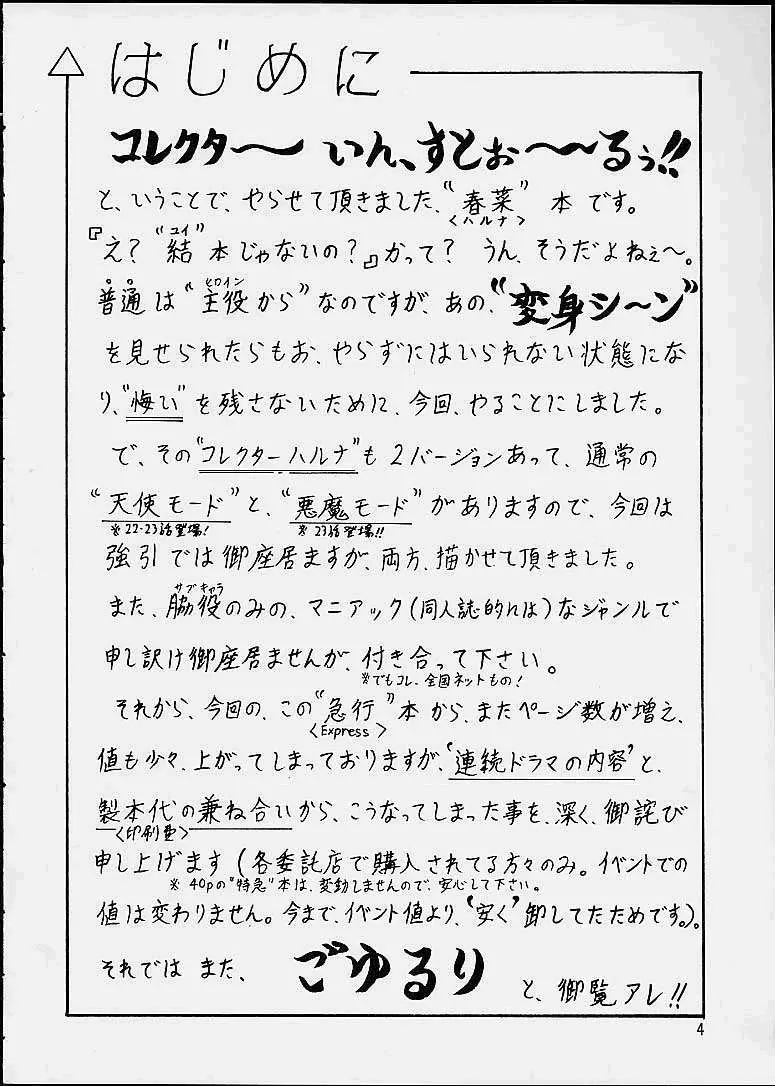 はじめに
コレクター〜 いん、すとぉ〜〜るぅ!!
と、いうことで、やらせて頂きました、“春菜” 本です。
<ハルナ>
ユイ
『え? “結” 本じゃないの?』かって? うん、そうだよねぇ〜。
ヒロイン
普通は“主役から”なのですが、あの、“変身シ〜ン”
を見せられたらもお、やらずにはいられない状態にな
り、“悔い”を残さないために、今回、やることにしました。
で、その“コレクターハルナ”も2バージョンあって、通常の
“天使モード”と、“悪魔モード”がありますので、今回は
※22・23話登場! ※23話登場!!
強引では御座居ますが、両方、描かせて頂きました。
サブキャラ
また、脇役のみの、マニアック(同人誌的には)なジャンルで
申し訳け御座居ませんが、付き合って下さい。
※でもコレ、全国ネットもの!
それから、今回の、この“急行”本から、またページ数が増え、
<Express>
値も少々、上がってしまっておりますが、‘連続ドラマの内容’と、
製本代の兼ね合いから、こうなってしまった事を、深く、御詫び
<印刷費>
申し上げます(各委託店で購入されてる方々のみ。イベントでの
※40pの“特急”本は、変動しませんので、安心して下さい。
値は変わりません。今まで、イベント値より、‘安く’卸してたためです。)。
それでは また、 ごゆるり と、御覧アレ!!
4